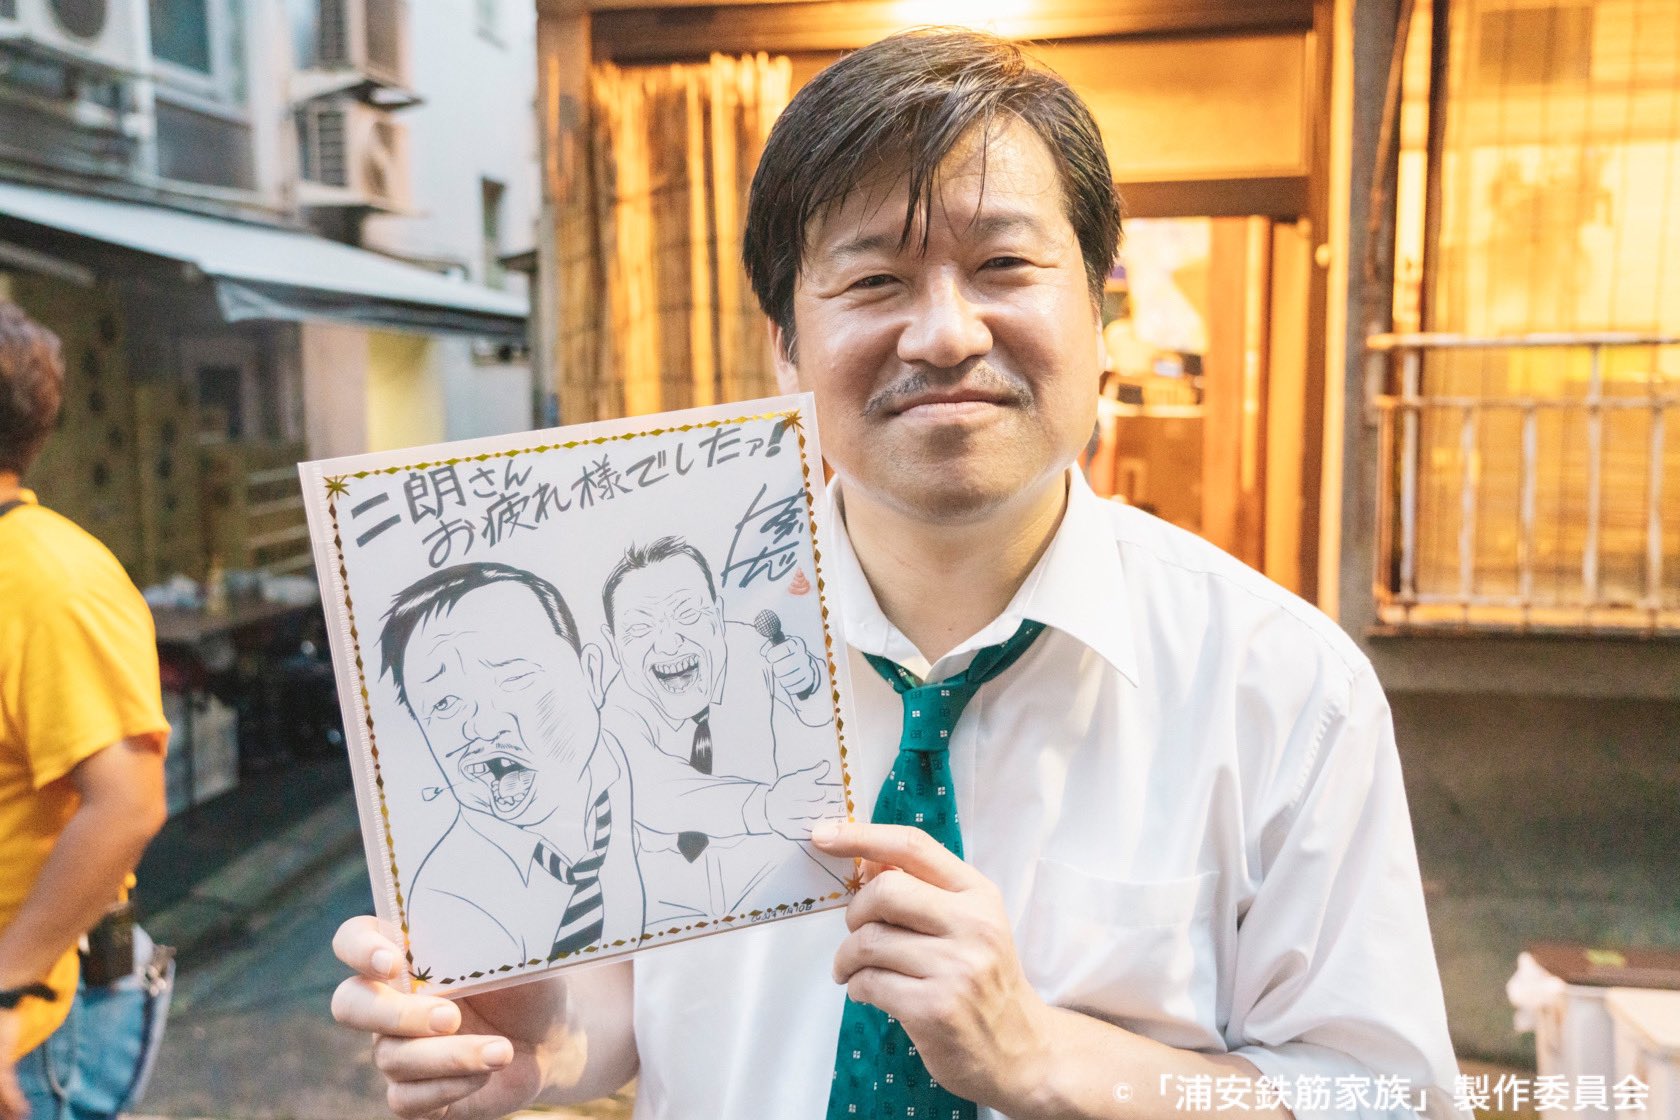 二朗さん
お疲れ様でしたァ!
©「浦安鉄筋家族」製作委員会